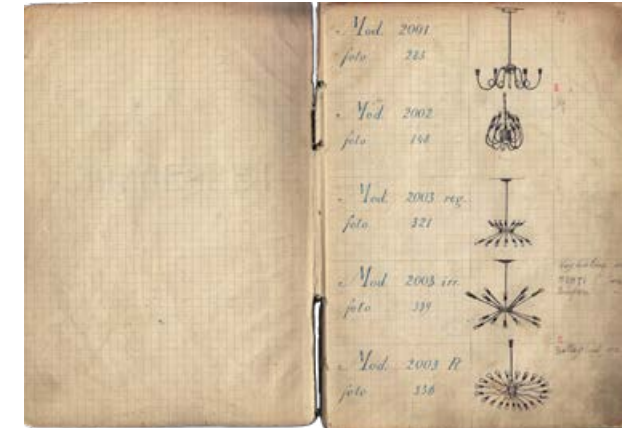 Mod. 2001
foto 285
Mod. 2002
foto 148
Mod. 2003 reg.
foto 321
Mod. 2003 irr.
foto 339
Mod. 2003 R
foto 336